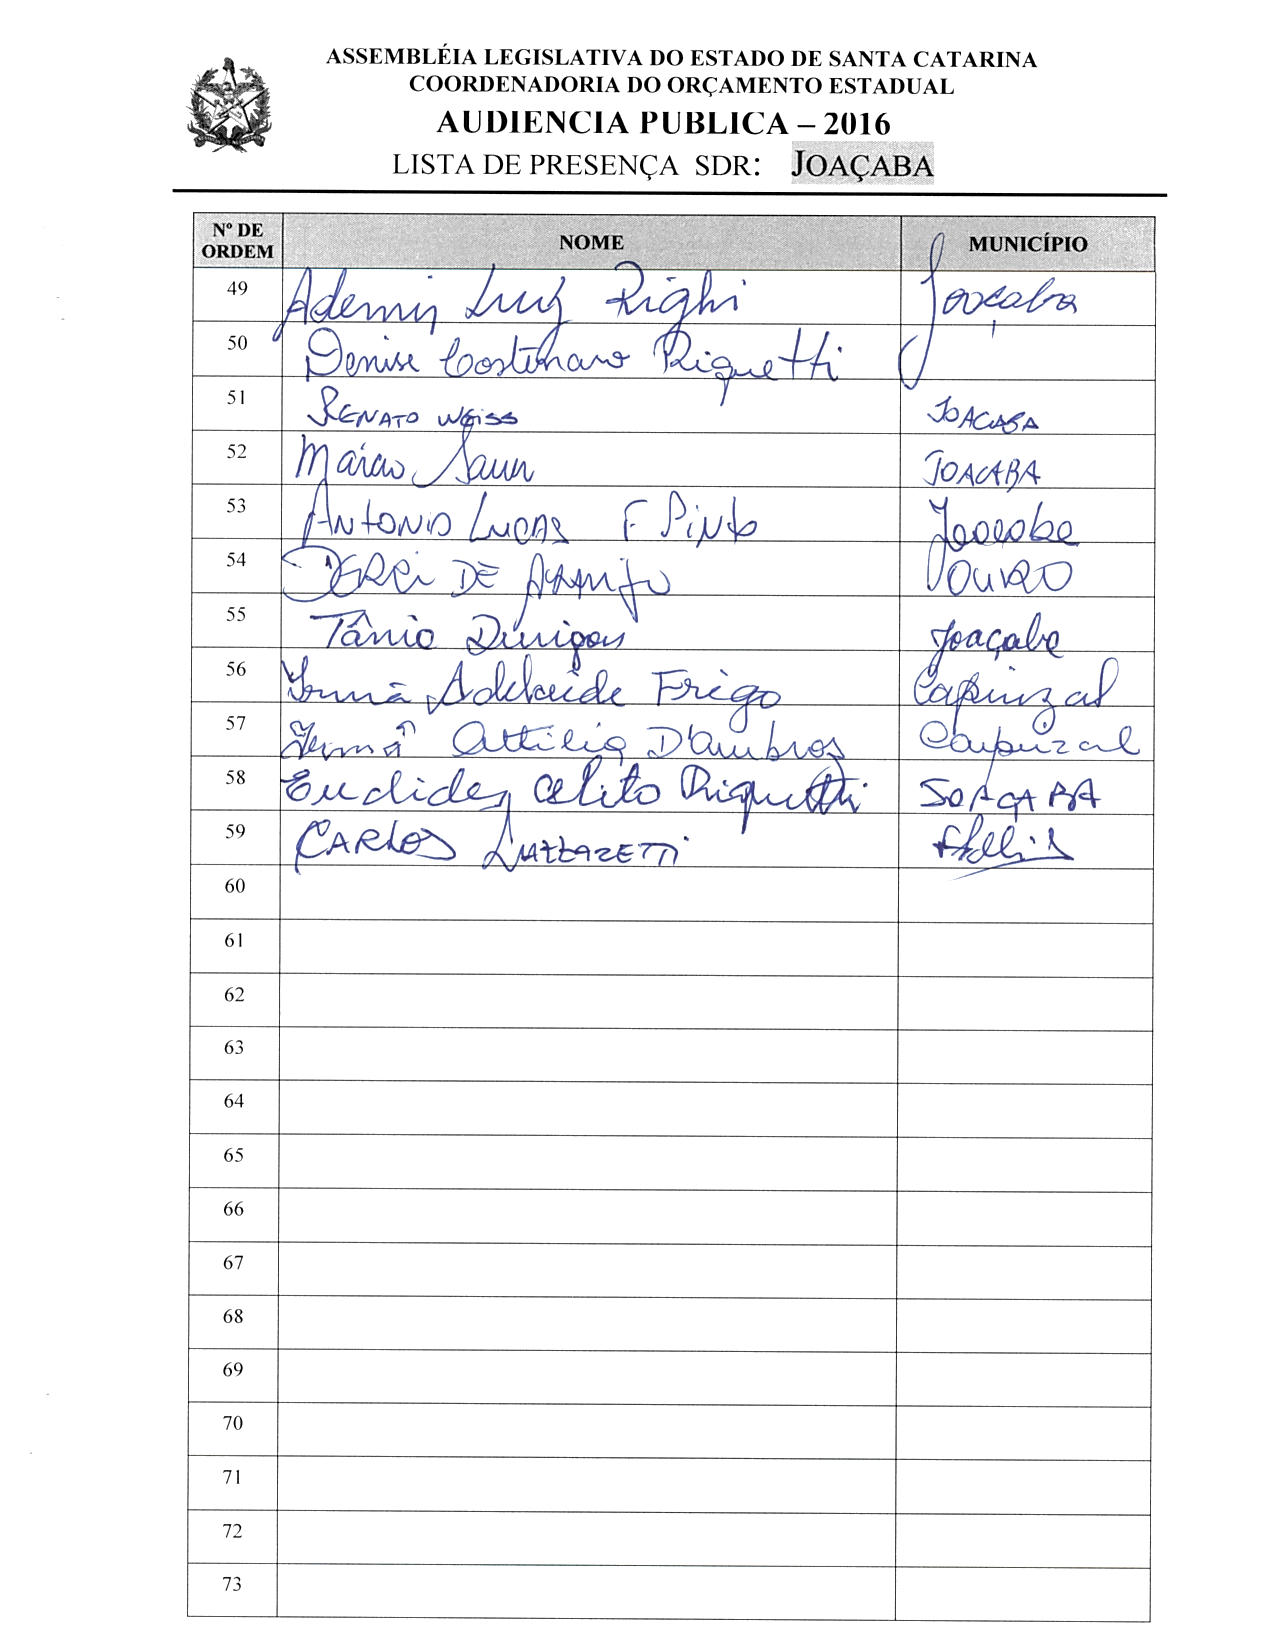 ASSEMBLÉIA LEGISLATIVA DO ESTADO DE SANTA CATARINA
COORDENADORIA DO ORÇAMENTO ESTADUAL
AUDIENCIA PUBLICA – 2016
LISTA DE PRESENÇA SDR: JOAÇABA
Nº DE ORDEM NOME MUNICÍPIO
49 Ademir Luiz Righi Joaçaba
50 Denise Riquetti
51 RENATO WEISS JOACABA
52 JOACABA
53 ANTONIO LUCAS F PINTO Joacaba
54 DERCI DE ARAUJO OURO
55 Tânia Joaçaba
56 Irmã Adelaide Frigo Capinzal
57 Irmã Attilia D'Ambros Capinzal
58 Euclides Celito Riquetti JOAÇABA
59 CARLOS
60
61
62
63
64
65
66
67
68
69
70
71
72
73